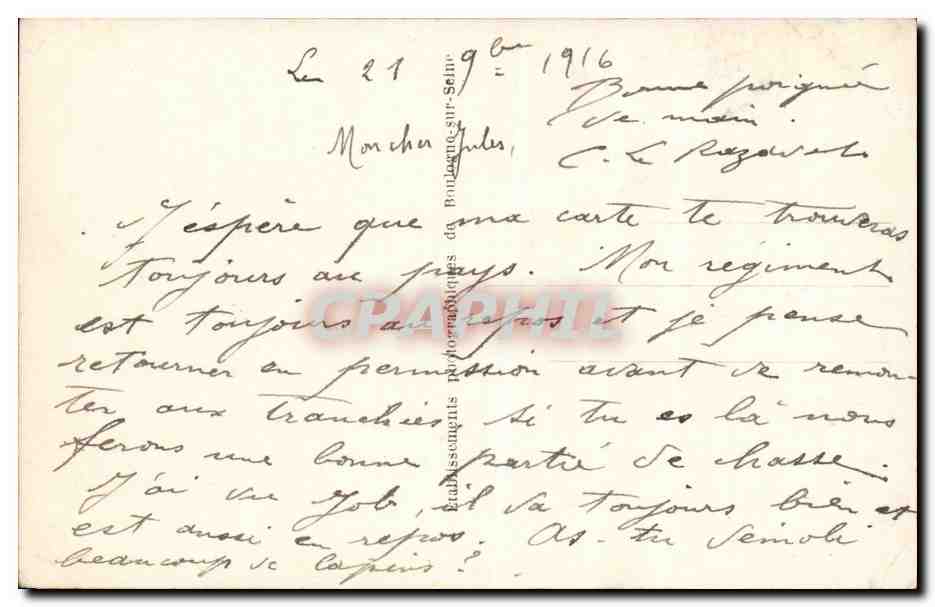 Le 21 9bre 1916
Mon cher Jules,
J'éspère que ma carte te trouveras
toujours au pays. Mon régiment
est toujours au repos et je pense
retourner en permission avant de remon-
ter aux tranchées. Si tu es là nous
ferons une bonne partie de chasse.
J'ai vu Job, il va toujours bien et
est aussi en repos. As-tu démoli
beaucoup de lapins?
Bonne poignée
de main.
C. Le
Etablissements photographiques de Boulogne-sur-Seine
CPAPHIL